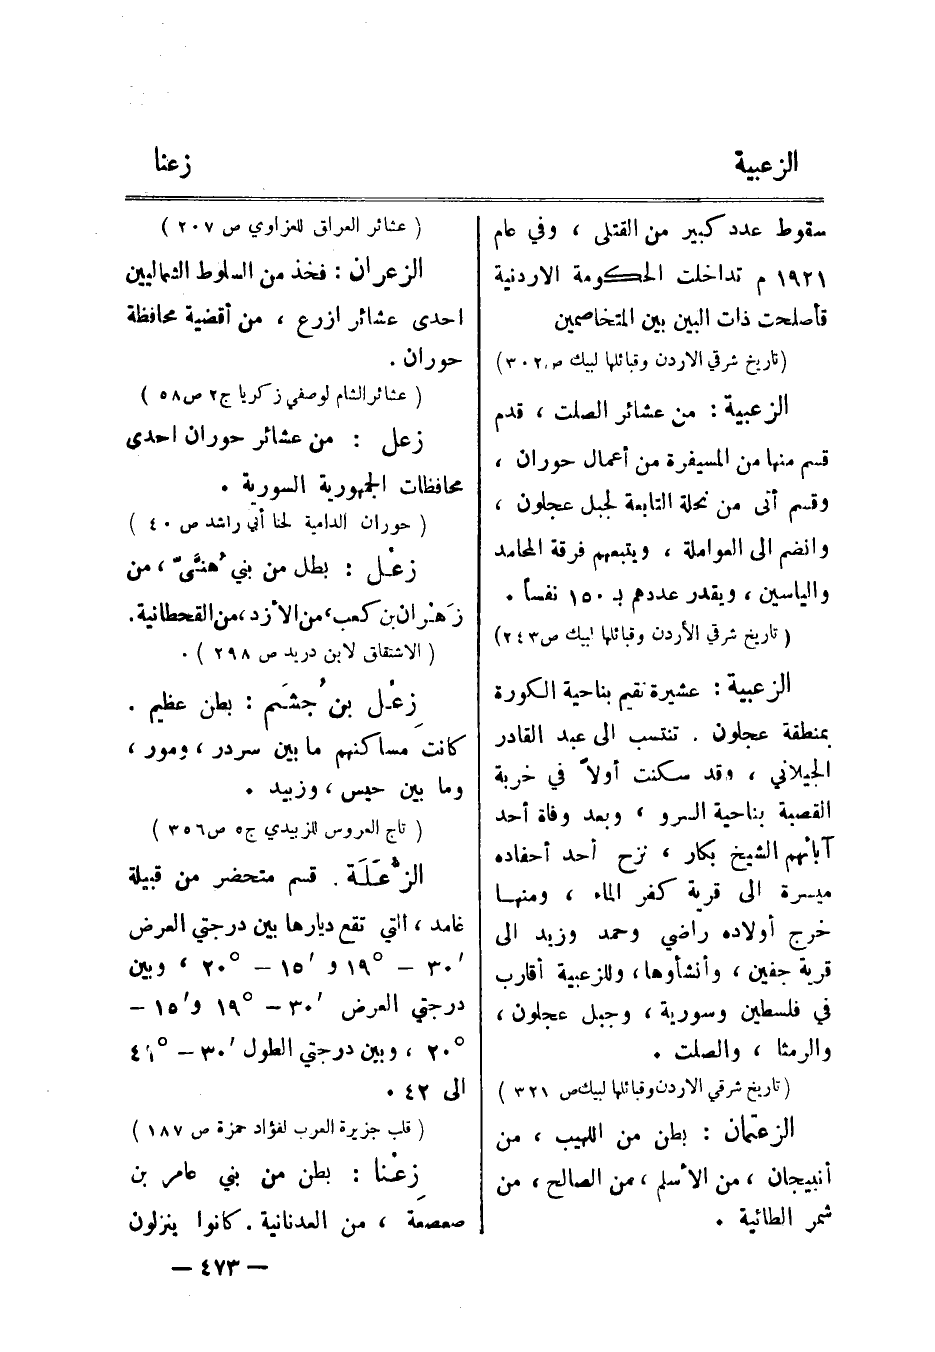 الزعبية
زعنا
سقوط عدد كبير من القتلى ، وفي عام
١٩٢١ م تداخلت الحكومة الاردنية
فأصلحت ذات البين بين المتخاصمين
(تاريخ شرقي الاردن وقبائلها لبيك ص ٣٠٢)
الزعبية : من عشائر الصلت ، قدم
قسم منها من المسيفرة من أعمال حوران ،
وقسم أتى من نحلة التابعة لجبل عجلون ،
وانضم الى العواملة ، ويتبعهم فرقة المحامد
والياسين ، ويقدر عددهم بـ ١٥٠ نفساً .
( تاريخ شرقي الأردن وقبائلها لبيك ص٢٤٣)
الزعبية : عشيرة تقيم بناحية الكورة
بمنطقة عجلون . تنتسب الى عبد القادر
الجيلاني ، وقد سكنت أولاً في خربة
القصبة بناحية السرو ، وبعد وفاة أحد
آبائهم الشيخ بكار ، نزح أحد أحفاده
ميسرة الى قرية كفر الماء ، ومنها
خرج أولاده راضي وحمد وزيد الى
قرية جفين ، وأنشأوها ، وللزعبية أقارب
في فلسطين وسورية ، وجبل عجلون ،
والرمثا ، والصلت .
(تاريخ شرقي الاردن وقبائلها لبيك ص ٣٢١ )
الزعتمان : بطن من اللهيب ، من
أنبيجان ، من الأسلم ، من الصالح ، من
شمر الطائية .
( عشائر العراق للعزاوي ص ٢٠٧ )
الزعران : فخذ من السلوط الشماليين
احدى عشائر ازرع ، من أقضية محافظة
حوران .
( عشائر الشام لوصفي زكريا ج٢ ص ٥٨ )
زعل : من عشائر حوران احدى
محافظات الجمهورية السورية .
( حوران الدامية لحنا أبي راشد ص ٤٠ )
زعْل : بطل من بني هُنَّيّ ، من
زَهْران بن كعب ، من الأزد ، من القحطانية .
( الاشتقاق لابن دريد ص ٢٩٨ ) .
زِعْل بن جُشَم : بطن عظيم .
كانت مساكنهم ما بين سردر ، ومور ،
وما بين حيس ، وزبيد .
( تاج العروس للزبيدي ج٥ ص ٣٥٦ )
الزُّعَلَة . قسم متحضر من قبيلة
غامد ، التي تقع ديارها بين درجتي العرض
٣٠′ – ١٩° و ١٥′ – ٢٠° ، وبين
درجتي العرض ٣٠′ – ١٩° و ١٥′ –
٢٠° ، وبين درجتي الطول ٣٠′ – ٤١°
الى ٤٢ .
( قلب جزيرة العرب لفؤاد حمزة ص ١٨٧ )
زِعْنا : بطن من بني عامر بن
صعصعة ، من العدنانية . كانوا ينزلون
— ٤٧٣ —